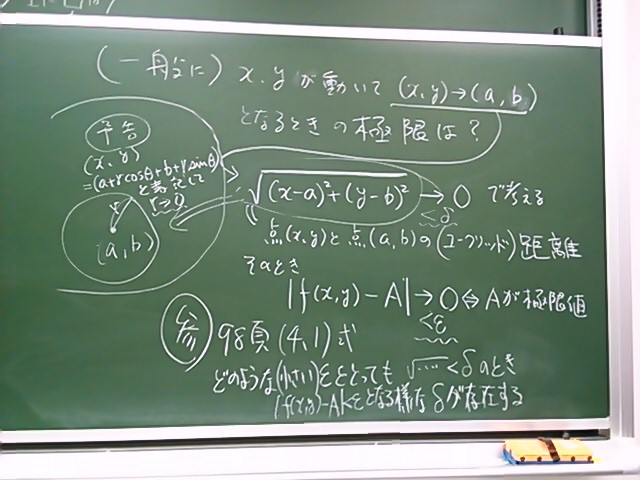 (一般に) x.yが動いて (x,y)→(a,b)
となるときの極限は?
予告
(x,y)
=(a+rcosθ+b+rsinθ)
と表記して
r→0
r
(a,b)
√(x-a)²+(y-b)² → 0 で考える
<δ
点(x,y)と点(a,b)の(ユークリッド)距離
そのとき
|f(x,y)-A|→0⇔Aが極限値
<ε
参 98頁(4,1)式
どのような(小さい)εをとっても √‥‥<δのとき
|f(x,y)-A|<εとなる様なδが存在する